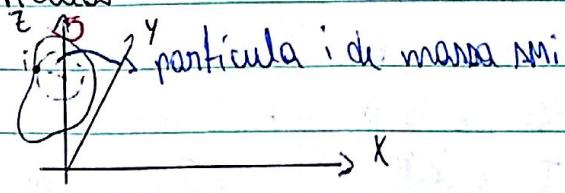 Z
Y
i
partícula i de massa mi
X